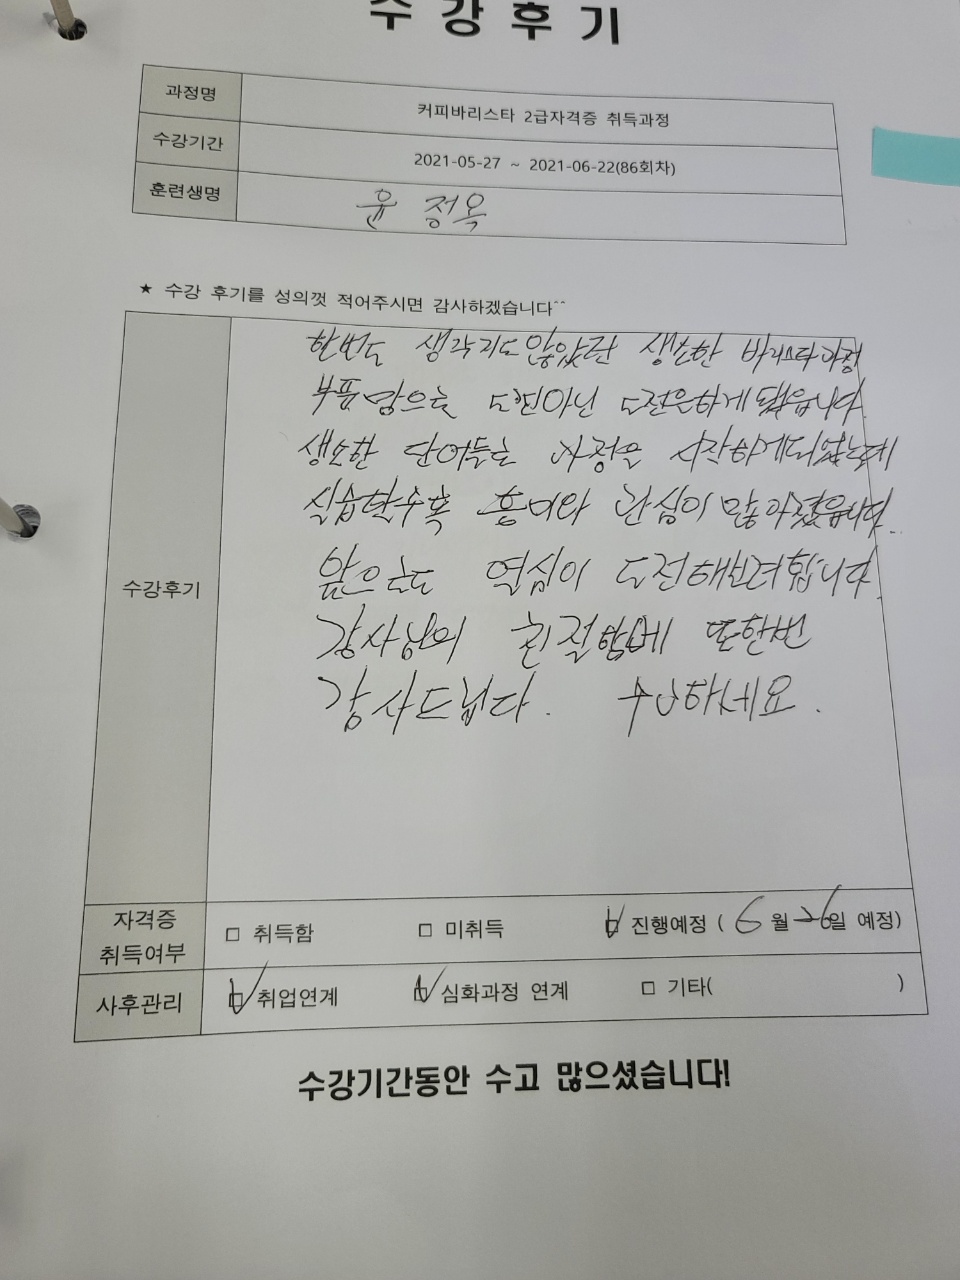 수강후기
과정명 커피바리스타 2급자격증 취득과정
수강기간 2021-05-27 ~ 2021-06-22(86회차)
훈련생명 윤정옥
★ 수강 후기를 성의껏 적어주시면 감사하겠습니다^^
수강후기
한번도 생각지도 않았던 생소한 바리스타과정
도전아닌 도전은하게 됐습니다.
생소한 단어들로 과정은 시작하게되었는데
실습할수록 흥미와 관심이 많아졌습니다..
앞으로도 열심이 도전해보려합니다.
강사님의 친절함에 또한번
감사드립다. 수고하세요.
자격증 취득여부 □ 취득함 □ 미취득 ☑ 진행예정 ( 6월 26일 예정)
사후관리 ☑ 취업연계 ☑ 심화과정 연계 □ 기타( )
수강기간동안 수고 많으셨습니다!